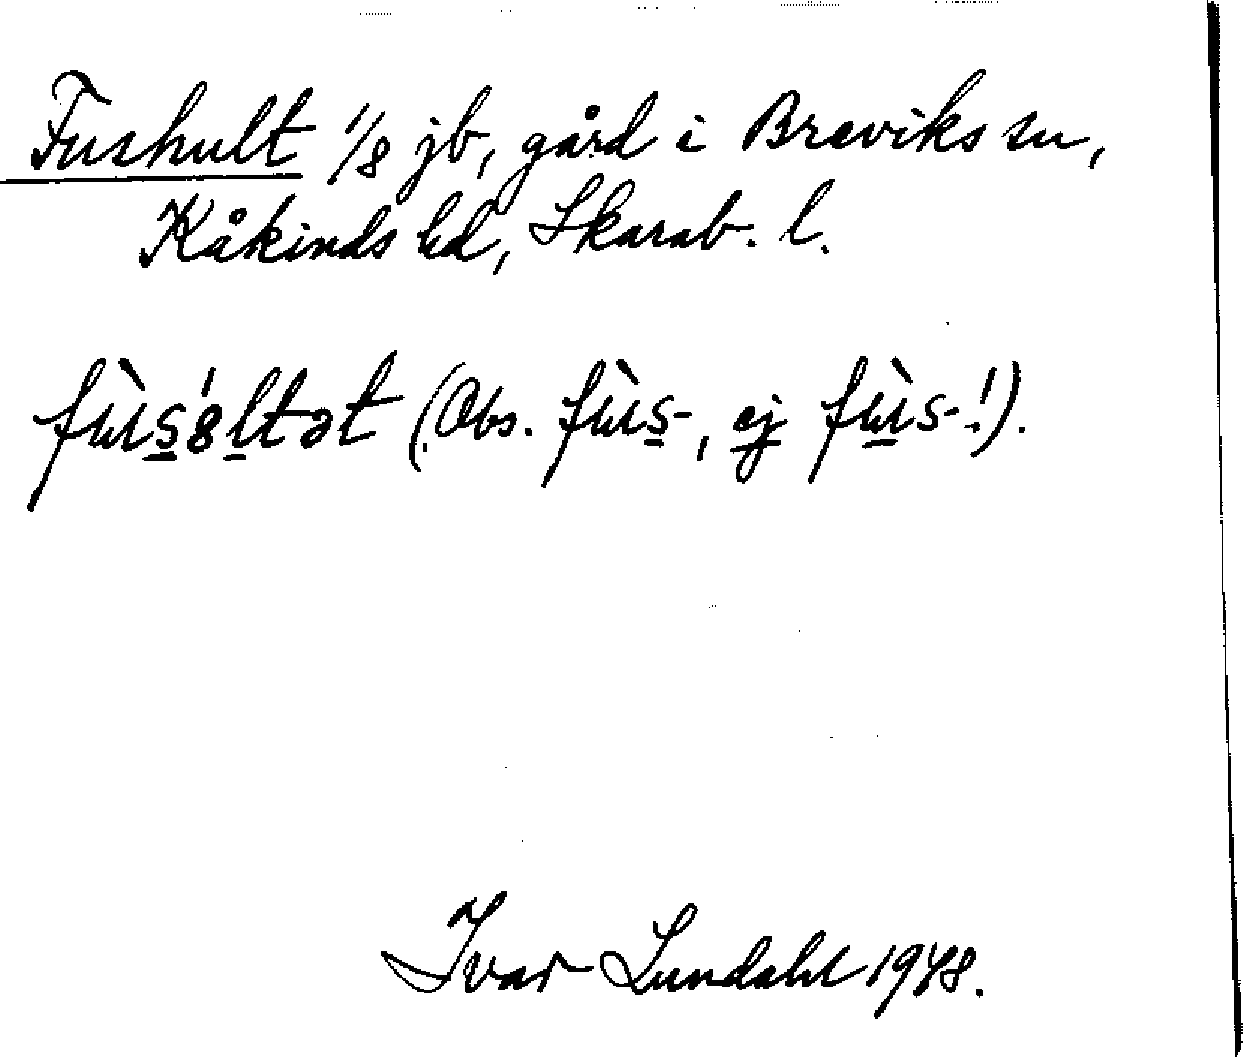 Fushult 1/8 jb, gård i Breviks sn,
Kåkinds hd, Skarab. l.
fùs̲ˈ8l̲tət (Obs. fùs̲-, ej fùs-!).
Ivar Lundahl 1948.